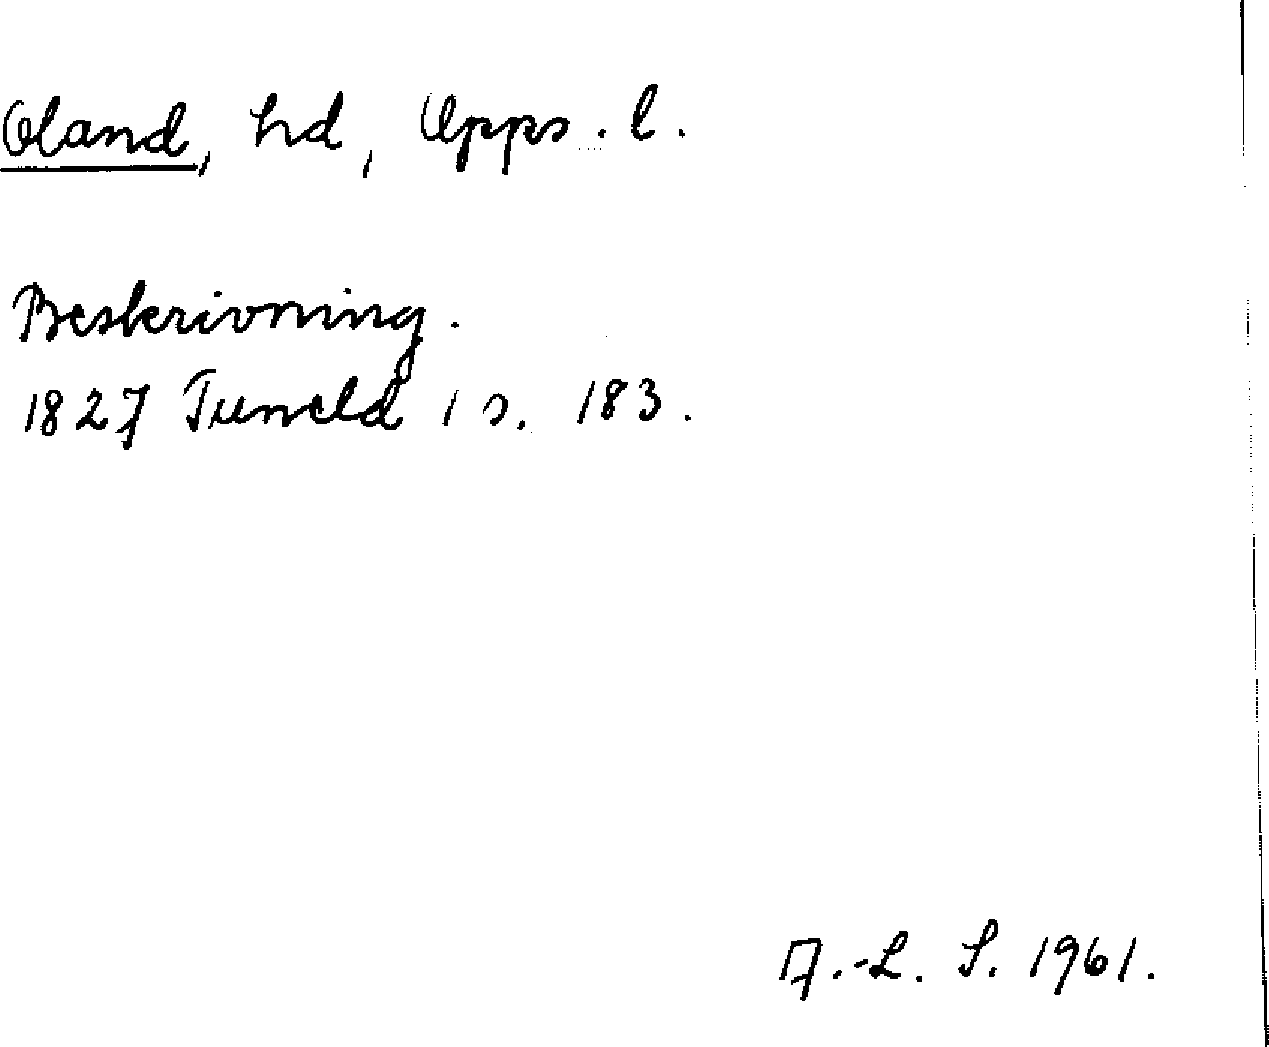 Oland, hd, Upps. l.
Beskrivning.
1827 Tuneld 1 s. 183.
A.-L. S. 1961.